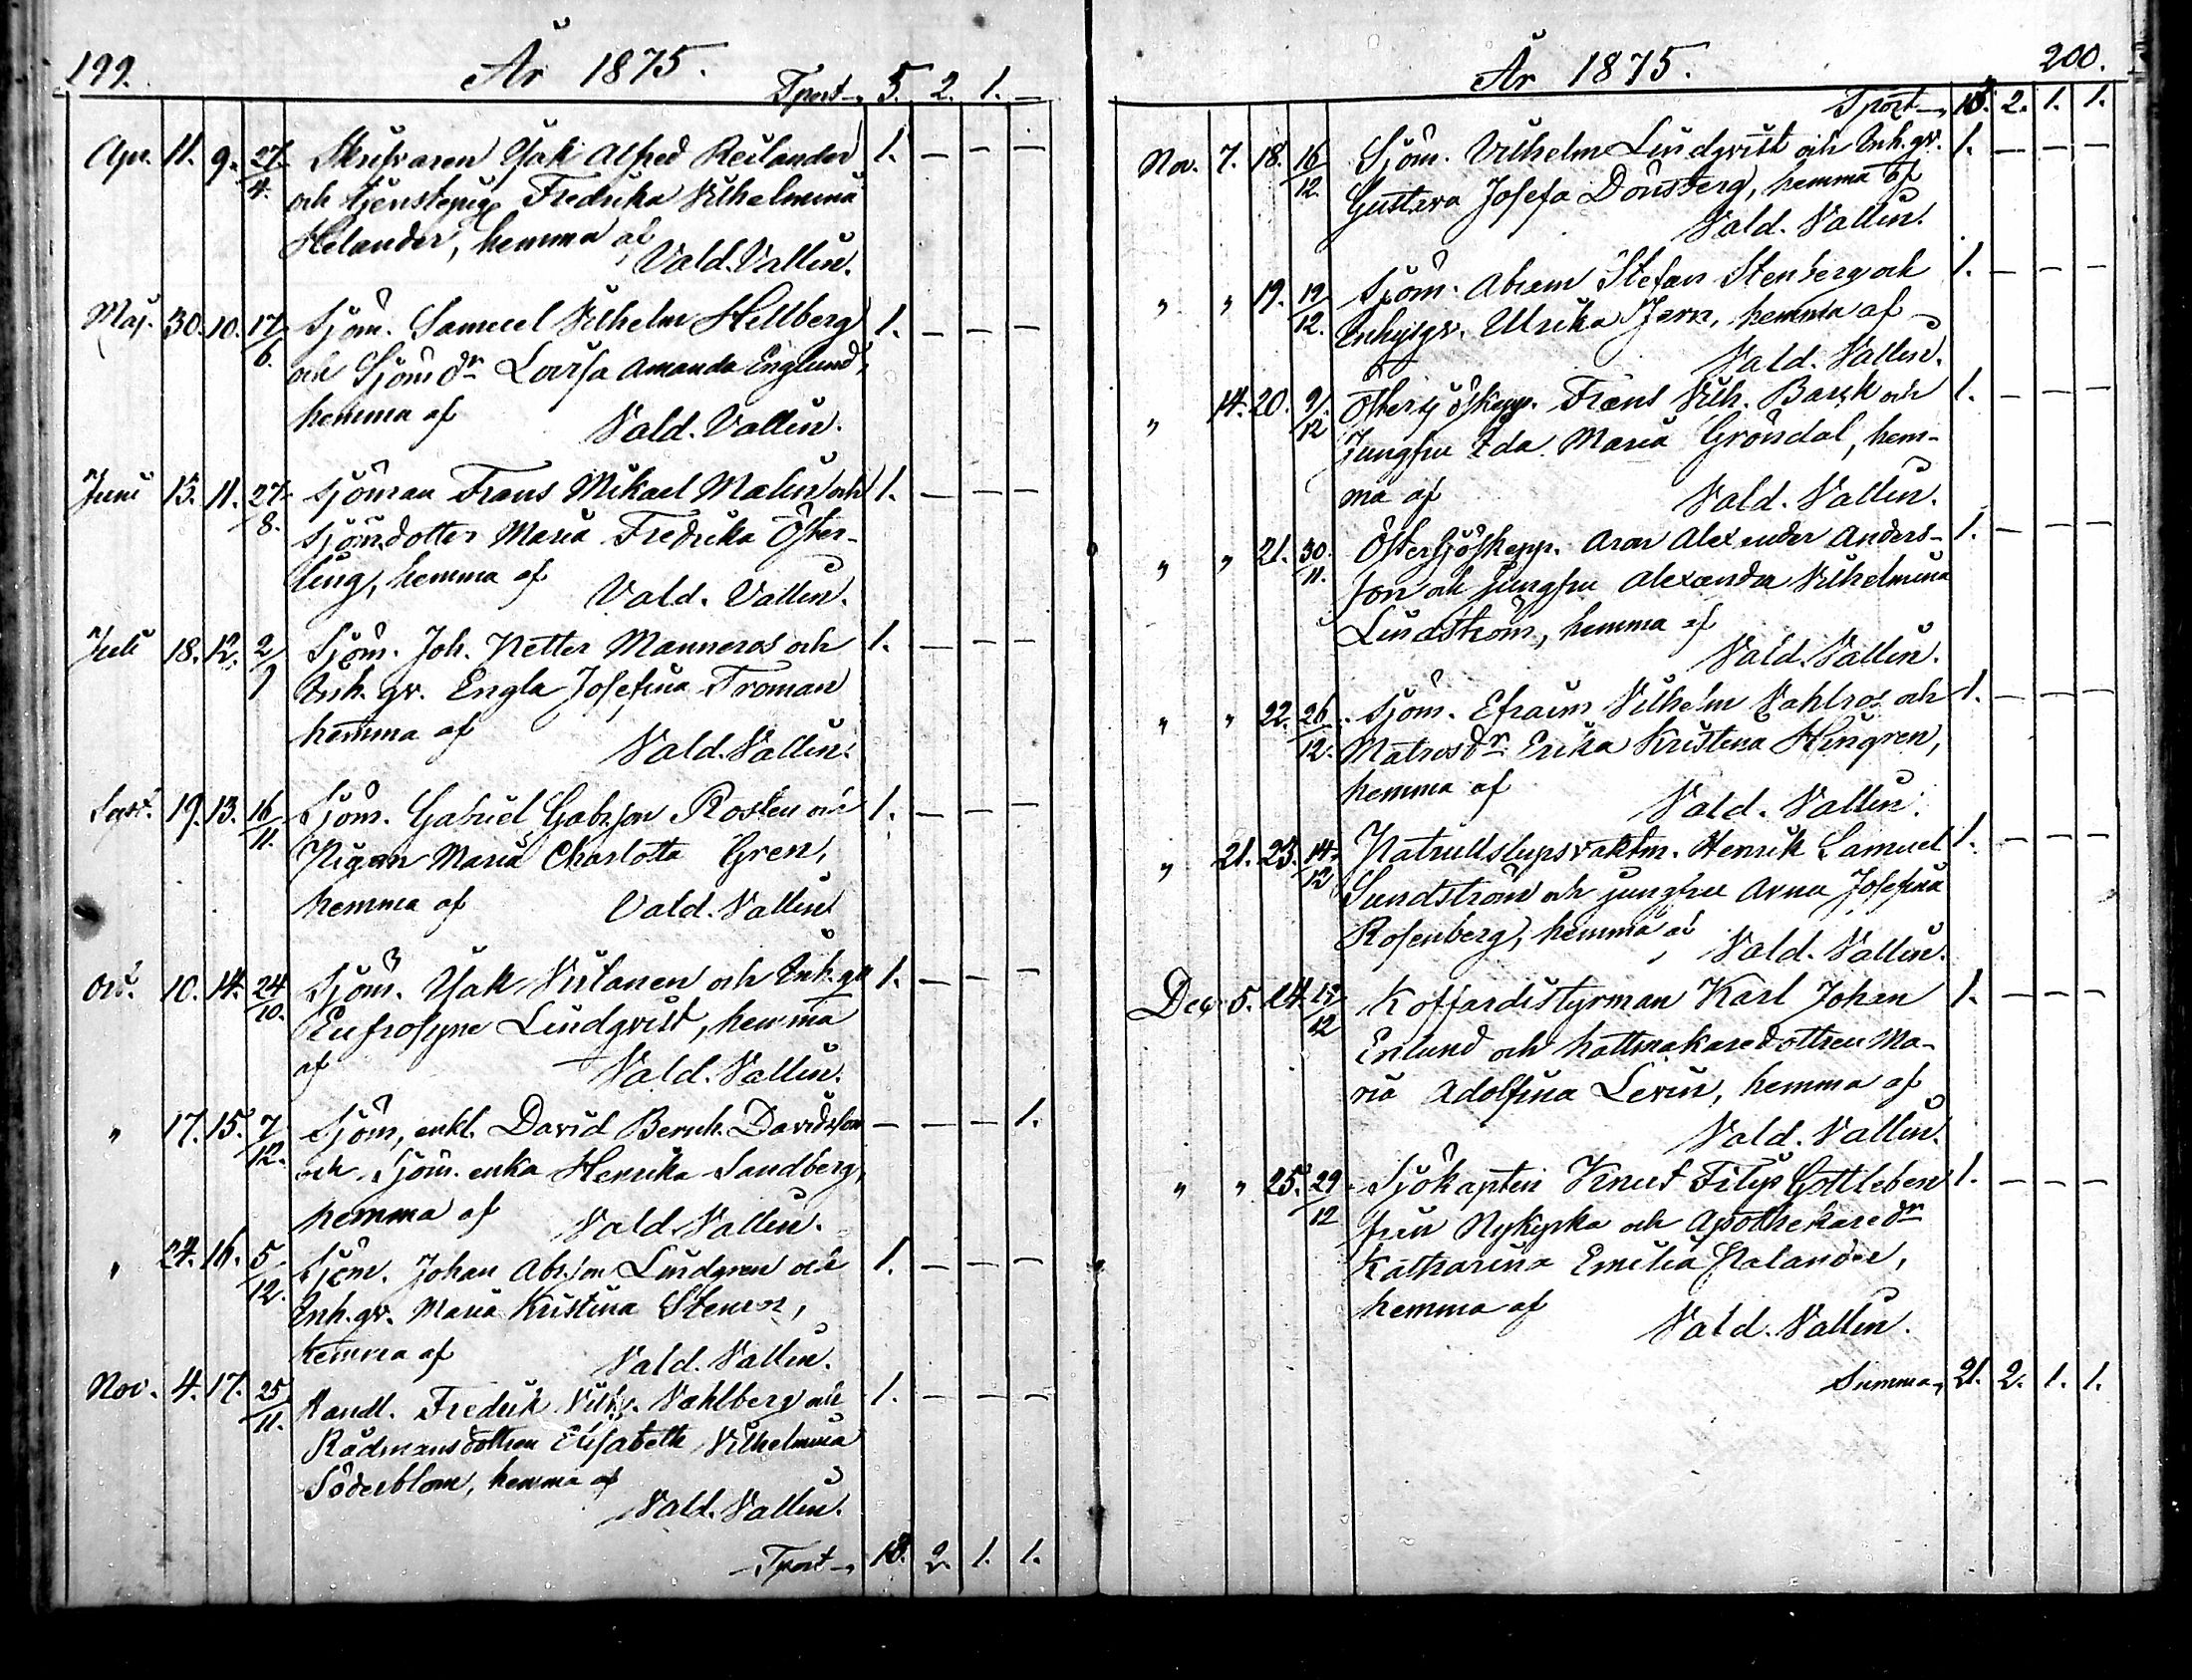 199.
År 1875.
Tport 5. 2. 1. —
Apr. 11. 9. 27/4. Skrifvaren Isak Alfred Reilander 1. — — —
och tjenstepig. Fredrika Vilhelmina
Helander, hemma af
Vald. Vallin.
Maj. 30. 10. 17/6. Sjöm. Samuel Vilhelm Hellberg 1. — — —
och Sjöm dr Lovisa Amanda Englund,
hemma af
Vald. Vallin.
Juni 13. 11. 27/8. Sjöman Frans Mikael Malin och 1. — — —
Sjöm.dotter Maria Fredrika Öster-
ling, hemma af
Vald. Vallin.
Juli 18. 12. 2/9 Sjöm. Joh. Petter Manneros och 1. — — —
Inh. gr. Engla Josefina Troman
hemma af
Vald. Vallin.
Sept. 19. 13. 16/11. Sjöm. Gabriel Gabrson Rosten och 1. — — —
Pigan Maria Charlotta Gren,
hemma af
Vald. Vallin
Oct. 10. 14. 24/10. Sjöm. Isak Virtanen och Inh. gr 1. — — —
Eufrosyne Lindqvist, hemma
af
Vald. Vallin.
" 17. 15. 7/12. Sjöm, enkl. David Bernh. Davidsson — — — 1.
och Sjöm. enka Henrika Sandberg,
hemma af
Vald. Vallin.
" 24. 16. 5/12. Sjöm. Johan Abrson Lindgren och 1. — — —
Inh. gr. Maria Kristina Stenros,
hemma af
Vald. Vallin.
Nov. 4. 17. 25/11. Handl. Fredrik Vilh. Vahlberg och 1. — — —
Rådmansdottren Elisabeth Vilhelmina
Söderblom, hemma af
Vald. Vallin.
Tport 13. 2. 1. 1.
År 1875.
200.
Tport 13. 2. 1. 1.
Nov. 7. 18. 16/12. Sjöm. Vilhelm Lindqvist och Inh. gr. 1. — — —
Gustava Josefa Dönsberg, hemma af
Vald. Vallin.
" " 19. 19/12. Sjöm. Abram Stefan Stenberg och 1. — — —
Inhysgr. Ulrika Jern, hemma af
Vald. Vallin.
" 14. 20. 9/12 Östersjöskepp. Frans Vilh. Barck och 1. — — —
Jungfru Ida Maria Gröndal, hem-
ma af
Vald. Vallin.
" " 21. 30/11. Östersjöskepp. Aron Alexander Anders- 1. — — —
son och jungfru Alexandra Vilhelmina
Lindström, hemma af
Vald. Vallin.
" " 22. 26/12. Sjöm. Efraim Vilhelm Vahlros och 1. — — —
Matrosdr. Erika Kristina Hingren,
hemma af
Vald. Vallin.
" 21. 23. 14/12 Patrullslupsvaktm. Henrik Samuel 1. — — —
Sundström och jungfru Anna Josefina
Rosenberg, hemma af
Vald. Vallin.
Dec. 5. 24. 12 Koffardistyrman Karl Johan 1. — — —
Enlund och hattmakaredottren Ma-
ria Adolfina Levin, hemma af
Vald. Vallin.
" " 25. 29/12 Sjökapten Knut Filip Gottleben 1. — — —
från Nykyrka och Apothekaredr
Katharina Emilia Salander,
hemma af
Vald. Vallin.
Summa 21. 2. 1. 1.